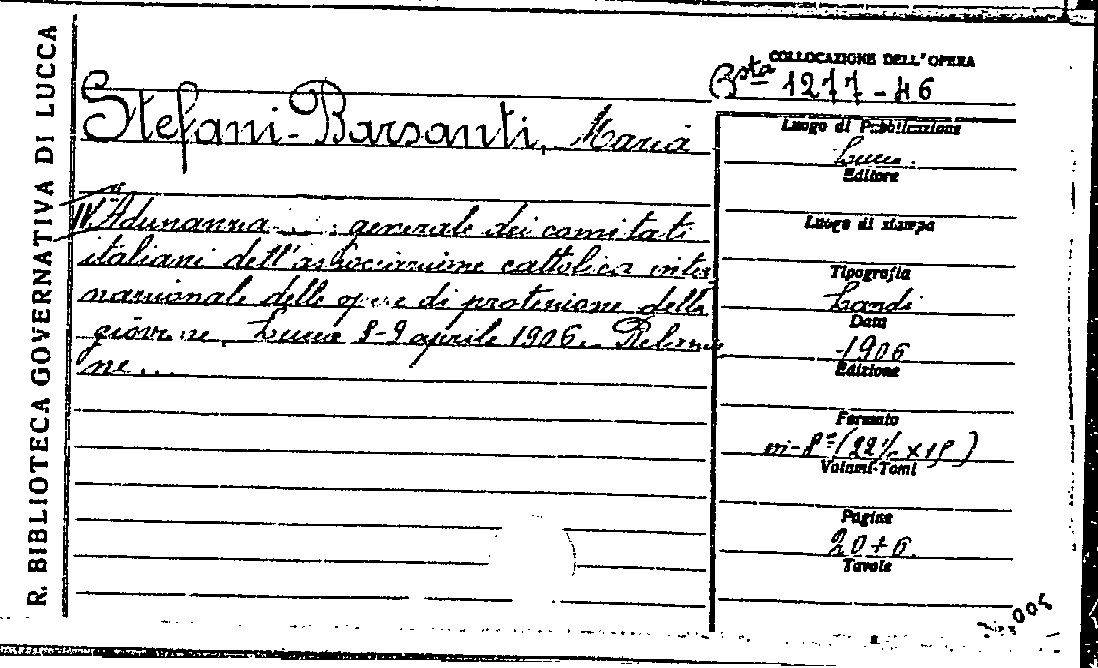 R. BIBLIOTECA GOVERNATIVA DI LUCCA
COLLOCAZIONE DELL'OPERA
Bsta 1277-46
Stefani-Barsanti, Maria
IVª Adunanza generale dei comitati
italiani dell'associazione cattolica inter
nazionale delle opere di protezione della
giovane, Lucca 8-9 aprile 1906. Relazio
ne...
Luogo di Pubblicazione
Lucca.
Editore
Luogo di stampa
Tipografia
Landi
Data
1906
Edizione
Formato
in-8º (22½ x 15)
Volumi-Tomi
Pagine
20+6.
Tavole